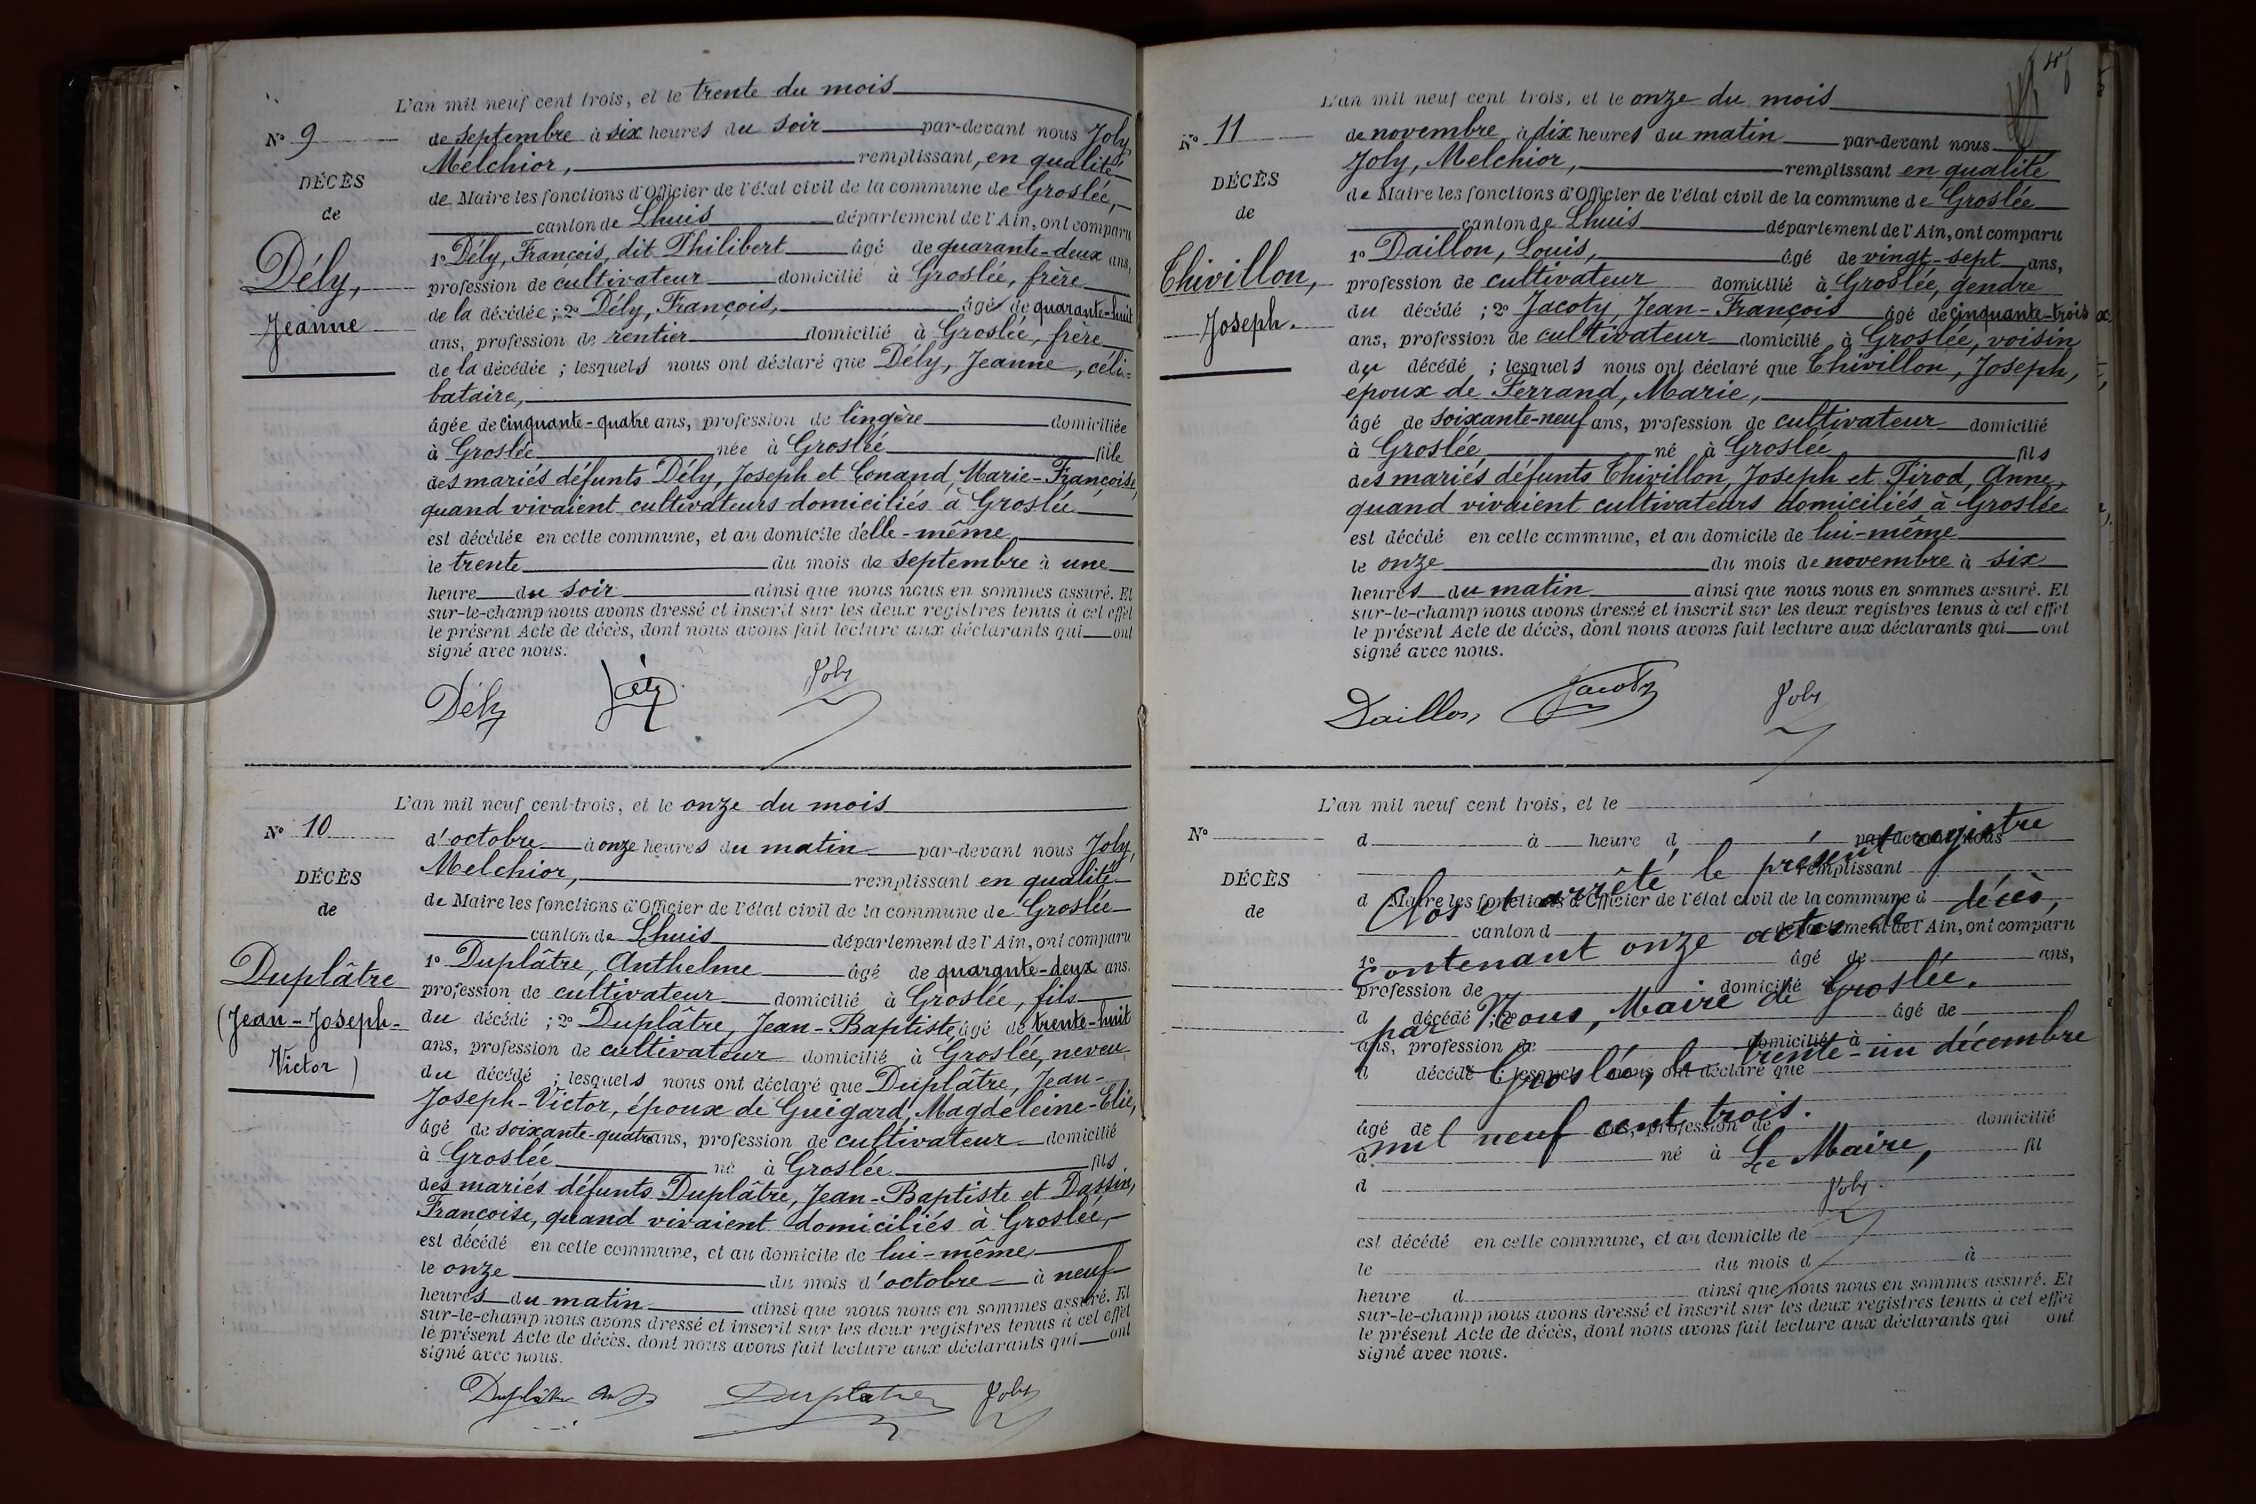 L'an mil neuf cent trois, et le trente du mois
N° 9
de septembre à six heures du soir par-devant nous Joly,
Melchior, remplissant, en qualité
DÉCÈS
de Maire les fonctions d'Officier de l'état civil de la commune de Groslée,
de
canton de Lhuis département de l'Ain, ont comparu
1° Dély, François, dit Philibert âgé de quarante-deux ans,
Dély,
profession de cultivateur domicilié à Groslée, frère
de la décédée ; 2° Dély, François, âgé de quarante-huit
Jeanne
ans, profession de rentier domicilié à Groslée, frère
de la décédée ; lesquels nous ont déclaré que Dély, Jeanne, céli-
bataire,
âgée de cinquante-quatre ans, profession de lingère domiciliée
à Groslée née à Groslée fille
des mariés défunts Dély, Joseph et Conand, Marie-Françoise,
quand vivaient cultivateurs domiciliés à Groslée
est décédée en cette commune, et au domicile d'elle-même
le trente du mois de septembre à une
heure du soir ainsi que nous nous en sommes assuré. Et
sur-le-champ nous avons dressé et inscrit sur les deux registres tenus à cet effet
le présent Acte de décès, dont nous avons fait lecture aux déclarants qui ont
signé avec nous.
Dély Dély Joly
L'an mil neuf cent-trois, et le onze du mois
N° 10
d'octobre à onze heures du matin par-devant nous Joly,
Melchior, remplissant en qualité
DÉCÈS
de Maire les fonctions d'Officier de l'état civil de la commune de Groslée
de
canton de Lhuis département de l'Ain, ont comparu
1° Duplâtre, Anthelme âgé de quarante-deux ans.
Duplâtre
profession de cultivateur domicilié à Groslée, fils
(Jean-Joseph-
du décédé ; 2° Duplâtre, Jean-Baptiste âgé de trente-huit
ans, profession de cultivateur domicilié à Groslée, neveu
Victor)
du décédé ; lesquels nous ont déclaré que Duplâtre, Jean-
Joseph-Victor, époux de Guigard, Magdeleine-Elie,
âgé de soixante-quatre ans, profession de cultivateur domicilié
à Groslée né à Groslée fils
des mariés défunts Duplâtre, Jean-Baptiste et Dassin,
Françoise, quand vivaient domiciliés à Groslée,
est décédé en cette commune, et au domicile de lui-même
le onze du mois d'octobre à neuf
heures du matin ainsi que nous nous en sommes assuré. Et
sur-le-champ nous avons dressé et inscrit sur les deux registres tenus à cet effet
le présent Acte de décès, dont nous avons fait lecture aux déclarants qui ont
signé avec nous.
Duplâtre Duplatre Joly
L'an mil neuf cent trois, et le onze du mois
N° 11
de novembre à dix heures du matin par-devant nous
Joly, Melchior, remplissant en qualité
DÉCÈS
de Maire les fonctions d'Officier de l'état civil de la commune de Groslée
de
canton de Lhuis département de l'Ain, ont comparu
1° Daillon, Louis, âgé de vingt-sept ans,
Thivillon,
profession de cultivateur domicilié à Groslée, gendre
du décédé ; 2° Jacoty, Jean-François âgé de cinquante-trois
Joseph.
ans, profession de cultivateur domicilié à Groslée, voisin
du décédé ; lesquels nous ont déclaré que Thivillon, Joseph,
époux de Ferrand, Marie,
âgé de soixante-neuf ans, profession de cultivateur domicilié
à Groslée, né à Groslée fils
des mariés défunts Thivillon, Joseph et Pirod, Anne,
quand vivaient cultivateurs domiciliés à Groslée
est décédé en cette commune, et au domicile de lui-même
le onze du mois de novembre à six
heures du matin ainsi que nous nous en sommes assuré. Et
sur-le-champ nous avons dressé et inscrit sur les deux registres tenus à cet effet
le présent Acte de décès, dont nous avons fait lecture aux déclarants qui ont
signé avec nous.
Daillon Jacoty Joly
L'an mil neuf cent trois, et le
N° d à heure d par-devant nous
remplissant
DÉCÈS
d Maire les fonctions d'Officier de l'état civil de la commune d
de
canton d département de l'Ain, ont comparu
1° âgé de ans,
profession de domicilié
d décédé ; 2° âgé de
ans, profession de domicilié à
d décédé ; lesquels nous ont déclaré que
âgé de ans, profession de domicilié
à né à fil
d
est décédé en cette commune, et au domicile de
le du mois d à
heure d ainsi que nous nous en sommes assuré. Et
sur-le-champ nous avons dressé et inscrit sur les deux registres tenus à cet effet
le présent Acte de décès, dont nous avons fait lecture aux déclarants qui ont
signé avec nous.
Clos et arrêté le présent registre
contenant onze actes de décès,
par Nous, Maire de Groslée.
Groslée, le trente-un décembre
mil neuf cent trois.
Le Maire,
Joly